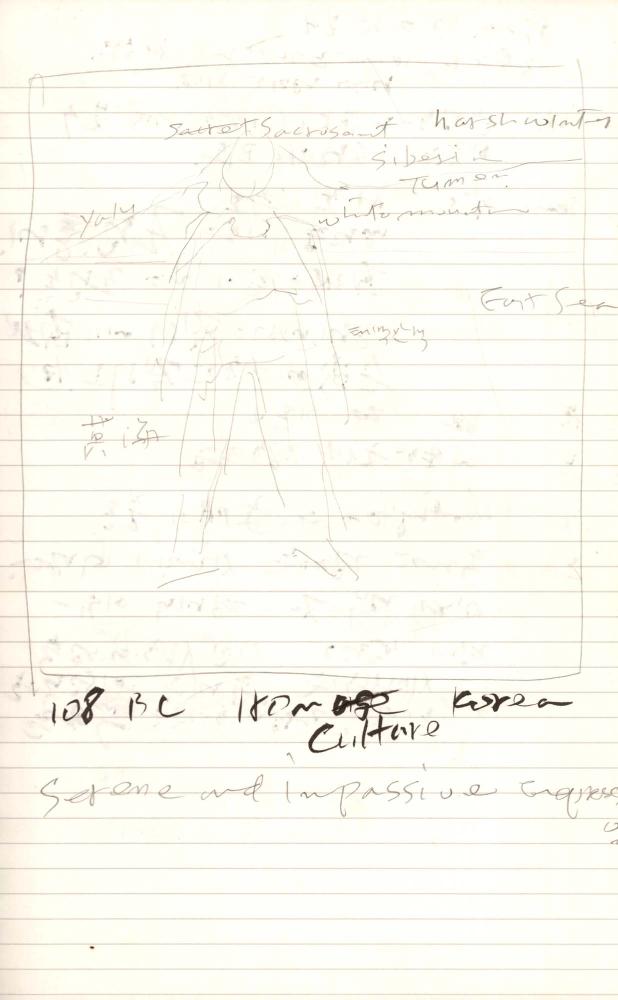 Sacret Sacrosant harsh winter
Siberia
Tumen
Yalu
white mountain
East Sea
黃海
108 BC Iron age Korea
Culture
Serene and impassive